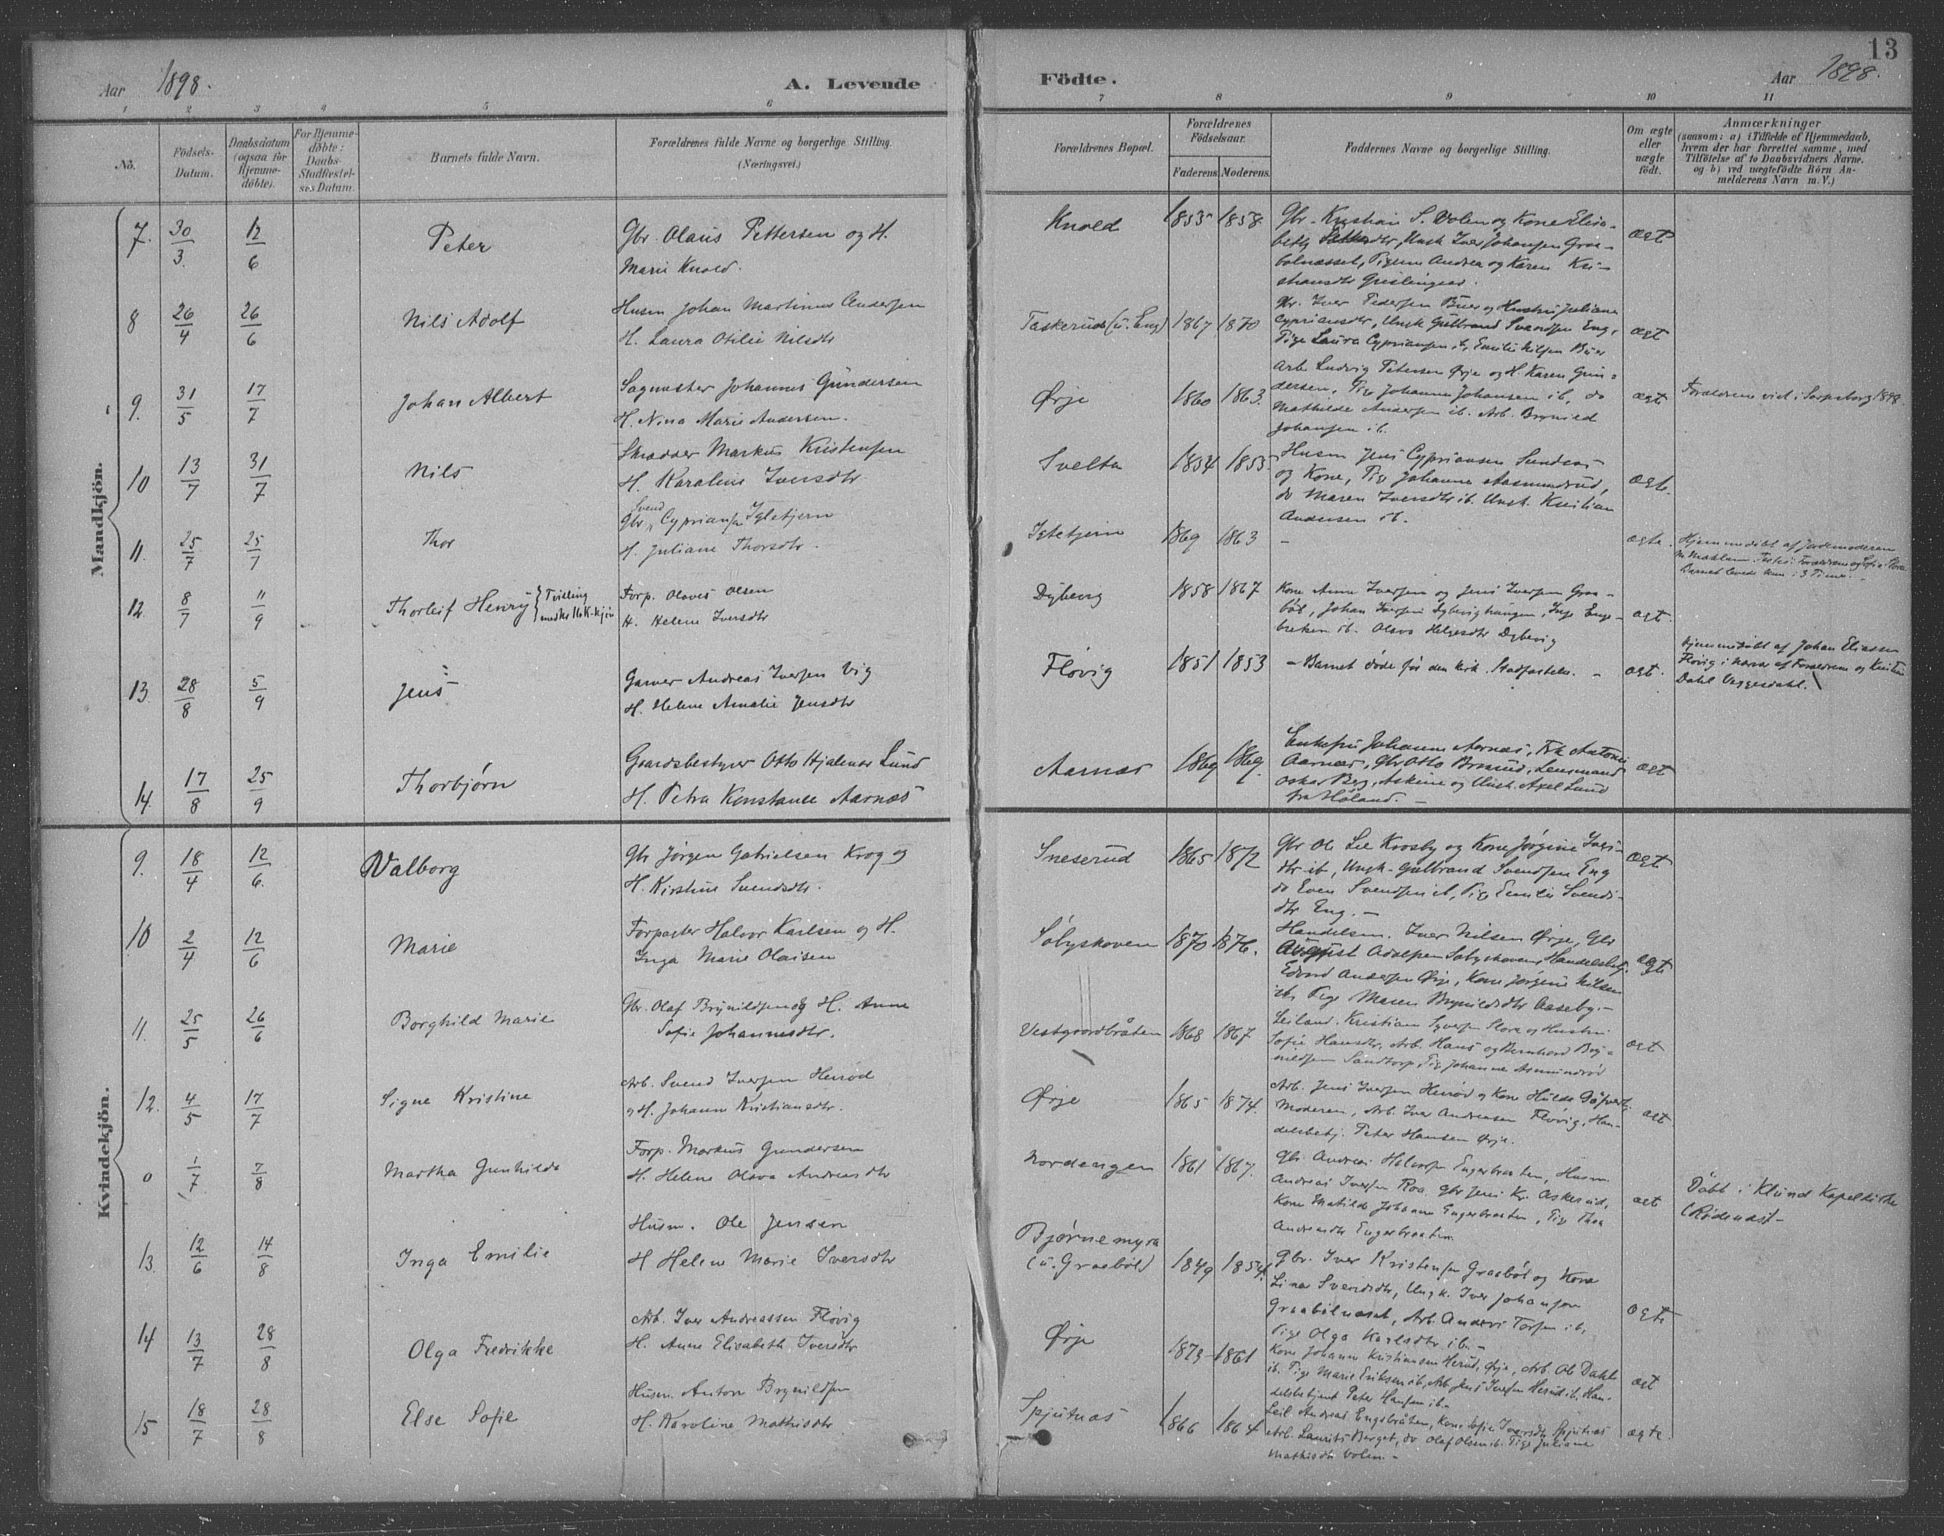 13
Aar 1898.
A. Levende
Födte.
Aar 1898.
1 2 3 4 5 6 7 8 9 10 11
No.
Födsels-Datum.
Daabsdatum (ogsaa for Hjemmedøbte).
For Hjemmedøbte: Daabs-Stadfæstelses Datum.
Barnets fulde Navn.
Forældrenes fulde Navne og borgerlige Stilling. (Næringsvei.)
Forældrenes Bopæl.
Forældrenes Födselsaar. Faderens Moderens.
Faddernes Navne og borgerlige Stilling.
Om ægte eller uægte født.
Anmærkninger (saasom: a) i Tilfælde af Hjemmedaab, hvem der har forrettet samme, med Tilföielse af to Daabsvidners Navne. og b) ved uægtefödte Börn Anmelderens Navn m. V.)
Mandkjön.
7. 30/3 12/6 Peter
Gbr. Olaus Pettersen og H.
Marie Knold.
Knold 1855 1858.
Gbr. Kristian S. Volen og Kone Elisa-
beth Ungk Iver Johansen Graa-
bølnæsset, Pigerne Andrea og Karen Kri-
stiansdtr
ægt
8 26/4 26/6 Nils Adolf
Husm Johan Martinus Andersen
H. Laura Otilie Nilsdtr
Taskerud (u. Eng) 1867 1870
Gbr. Iver Pedersen Buer og Hustru Juliane
Cypriansdtr, Ungk Gulbrand Svendsen Eng,
Pige Laura Cypriansen ib, Emilie Nilsen Buer
ægt
9. 31/5 17/7 Johan Albert
Sagmester Johannes Gundersen
H. Nina Marie Andersen.
Ørje 1860 1863.
Arb Ludvig Petersen Ørje og H. Karen Gun-
dersen, Pige Johanne Johansen ib, do
Mathilde Andersen ib. Arb. Brynild
Johansen ib.
ægt
Forældrene viet i Sarpsborg 1898.
10 13/7 31/7 Nils
Skrædder Markus Kristensen
H. Karoline Iversdtr
Svelta 1854 1853
Husm Jens Cypriansen Sundaas
og Kone, Pige Johanne Aasmundrud,
do Maren Iversdtr ib. Ungk. Kristian
Andersen ib.
ægte.
11. 25/7 25/7 Thor
Gbr. Svend Cypriansen Igletjern
H. Juliane Thorsdtr.
Igletjern 1869 1863 -
ægte.
Hjemmedøbt af Jordemoderen
Barnet levede kun i 3 Timer.
12. 8/7 11/9 Thorleif Henry { Tvilling
Forp. Olaves Olsen
H. Helene Iversdtr
Dybevig 1858 1867
Kone Anna Iversen og Jens Iversen Graa-
bøl, Johan Iversen Dybevighaugen, Inge Enge-
bretsen ib. Olava Helgesdtr Dybevig
ægt.
13 28/8 5/9 Jens
Garver Andreas Iversen Vig
H. Helene Amalie Jensdtr
Fløvig 1851 1853
- Barnet døde før den kirk. Stadfæstelse. -
ægt.
Hjemmedøbt af Johan Eliassen
Fløvig i nærv af Forældrene og Kristian
Dahl Væggesdahl.
14. 17/8 25/9 Thorbjørn
Gaardsbestyrer Otto Hjalmar Lund
H. Petra Konstanse Aarnæs
Aarnæs 1869 1869.
Enkefru Johanne Aarnæs, Frk Antonie
Aarnæs, Gbr Otto Braarud, Lensmand
Oskar Berg, Askim og Ungk. Axel Lund
fra Høland. -
ægt
Kvindekjön.
9. 18/4 12/6. Valborg
Gbr Jørgen Gabrielsen Krog og
H. Kirstine Svendsdtr.
Sneserud 1865 1872
Gbr Ole Lie Krosby og Kone Jørgine Iver-
dtr ib, Ungk. Gulbrand Svendsen Eng
do Even Svendsen ib, Pige Emilie Svends-
dtr Eng. -
ægt
10 2/4 12/6 Marie
Forpagter Halvor Karlsen og H.
Inga Marie Olaisen
Søbyskoven 1870 1876.
Handelsm. Iver Nilsen Ørje, Gbr
August Adolfsen Søbyskoven, Handelsbetj.
Edvard Andersen Ørje, Kone Jørgine Nilsen
ib, Pige Maren Brynildsdtr Aaseby. -
ægt
11. 25/5 26/6 Borghild Marie
Gbr. Olaf Brynildsen og H. Anne
Sofie Johannesdtr.
Vestgaardbråten 1868 1867
Leiland. Kristian Syversen Flore og Hustru
Sofie Hansdtr, Arb. Hans og Bernhard Bry-
nildsen Sandtorp, Pige Johanne Asmundrød
ægt
12. 4/5 17/7 Signe Kristine
Arb. Svend Iversen Herrød
og H. Johanne Kristiansdtr.
Ørje 1865 1874.
Arb. Jens Iversen Herrød og Kone Hulda
Moderen, Arb. Iver Andreassen Fløvig, Han-
delsbetj. Peter Hansen Ørje.
ægt
0 1/7 7/8 Martha Gunhilda
Forp. Markus Gundersen
H. Helene Olava Andreasdtr
Nordengen 1861 1867.
Gbr. Andreas Halvorsen Engerbraaten, Husm.
Andreas Iversen Roa. Gbr Jens Kr. Askerud,
Kone Matilde Johanne Engerbraaten, Pige Thea
Andreasdtr Engerbraaten.
ægt
Døbt i Klund Kapelkirke
(Rødenæs) -
13. 12/6 14/8 Inga Emilie
Husm. Ole Jensen
H Helene Marie Iversdtr
Bjørnemyra
(u. Graabøl) 1849 1854.
Gbr. Iver Kristensen Graabøl og Kone
Lina Svendsdtr, Ungk. Iver Johansen
Graabølnæset, Arb. Anders Torsen ib,
Pige Olga Karlsdtr ib. -
ægte
14 13/7 28/8 Olga Fredrikke
Arb. Iver Andreassen Fløvig
H. Anne Elisabeth Iversdtr
Ørje 1873 1861
Kone Johanne Kristiansen Herrud, Ørje, Arb. Ole Dahl
ib. Pige Marie Eriksen ib, Arb Jens Iversen Herud ib. Han-
delsbetjent Peter Hansen ib. -
ægt
15 18/7 28/8 Else Sofie
Husm. Anton Brynildsen
H. Karoline Mathisdtr
Spjutnæs 1866 1864
Leil Andreas Engebråten, Kone Sofie Iversdtr Spjutnæs
Arb. Laurits Berget, do Olaf Olsen ib. Pige Juliane
Mathisdtr Volen. -
ægte.